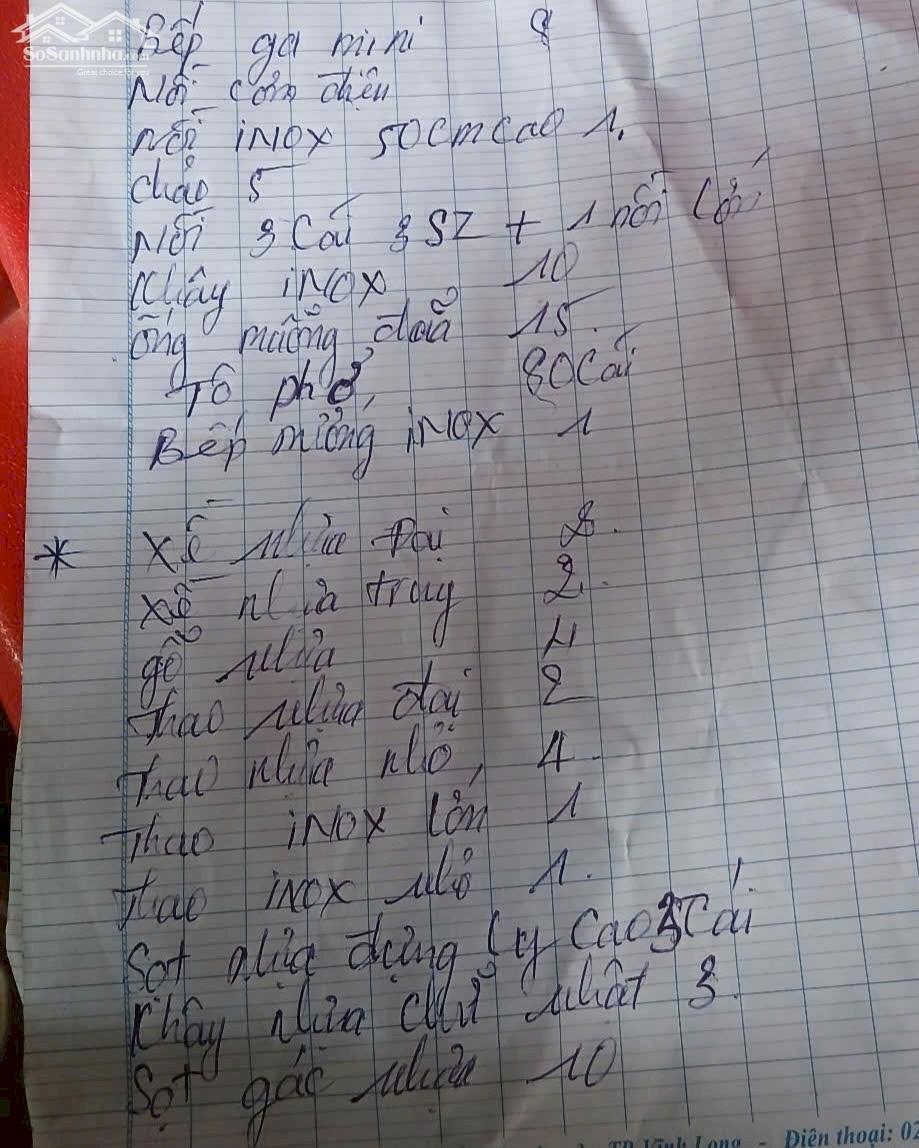 SoSanhnha.com
Great choice for you
Bếp ga mini 8
Nồi cơm điện
Nồi iNOX 50cm cao 1.
chảo 5
Nồi 3 Cái 3SZ + 1 nồi lớn
Khây iNOX 10
ống muỗng đoũa 15.
Tô phở, 80 Cái
Bếp miỏng iNOX 1
* Xề nhựa Đại 2.
xề nhựa trung 2.
gỗ nhựa 4
Thao nhựa đại 2
Thao nhựa nhỏ, 4.
Thao iNOX lớn 1
Thao iNOX nhỏ 1.
Sọt nhựa đựng ly Cao Cái
Khây nhựa chữ nhật 3.
Sọt gác nhựa 10
TP Vĩnh Long - Điện thoại: 02